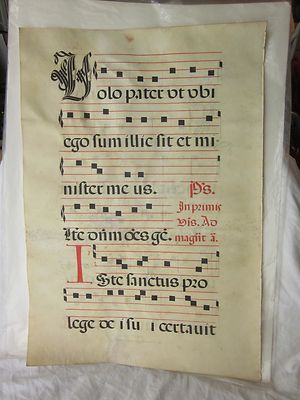 Volo pater vt vbi
ego sum illic sit et mi
nister me us. Ps.
In primis
Vis. Ad
Lte dnm oēs gē. magnt ā.
Iste sanctus pro
lege de i su i certavit